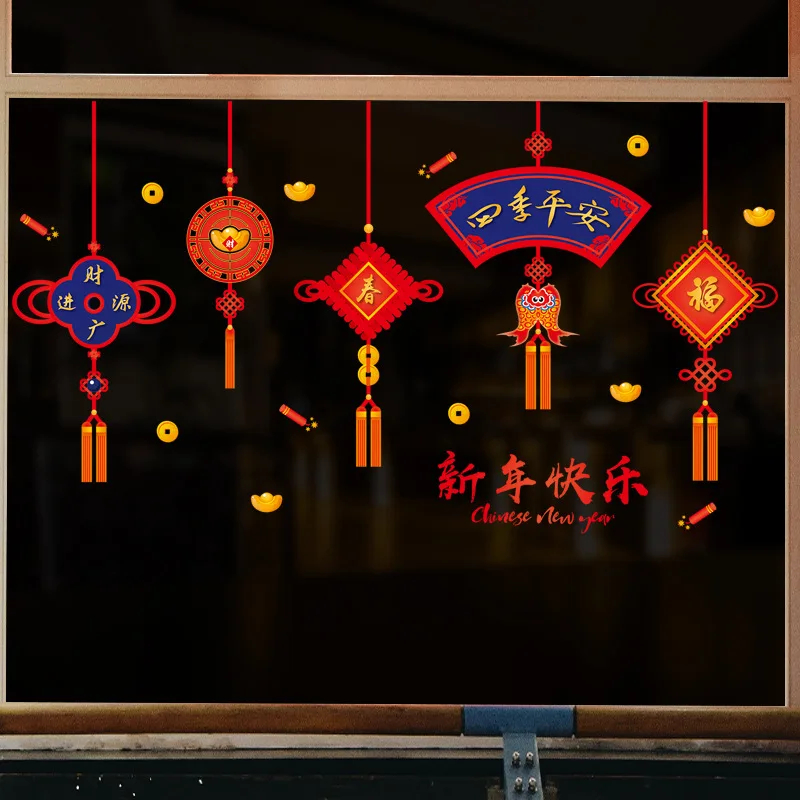 财源广进
财
春
四季平安
福
新年快乐
Chinese New year